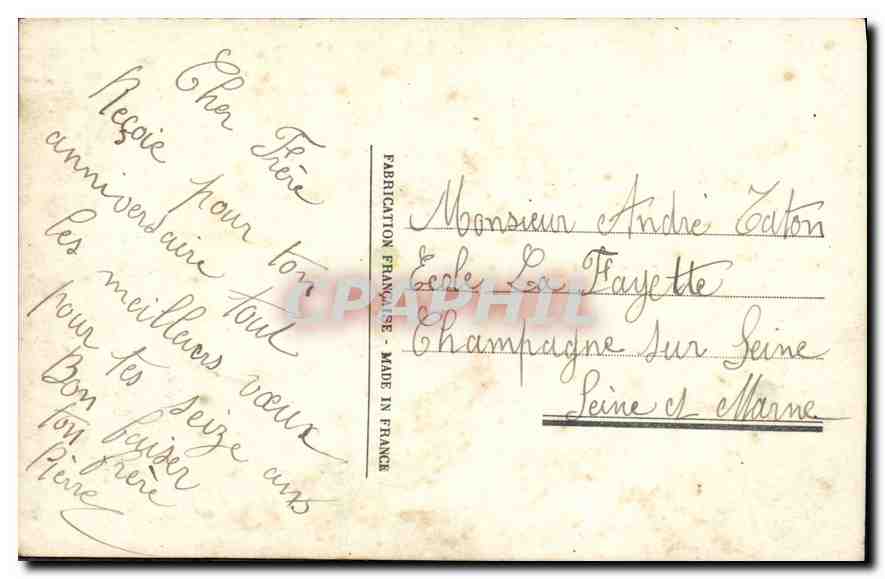 Cher Frère
Reçoie pour ton
anniversaire tout
les meilleurs vœux
pour tes seize ans
Bon baiser
ton frère
Pierre
FABRICATION FRANÇAISE - MADE IN FRANCE
CPAPHIL
Monsieur André Taton
Ecole La Fayette
Champagne sur Seine
Seine et Marne